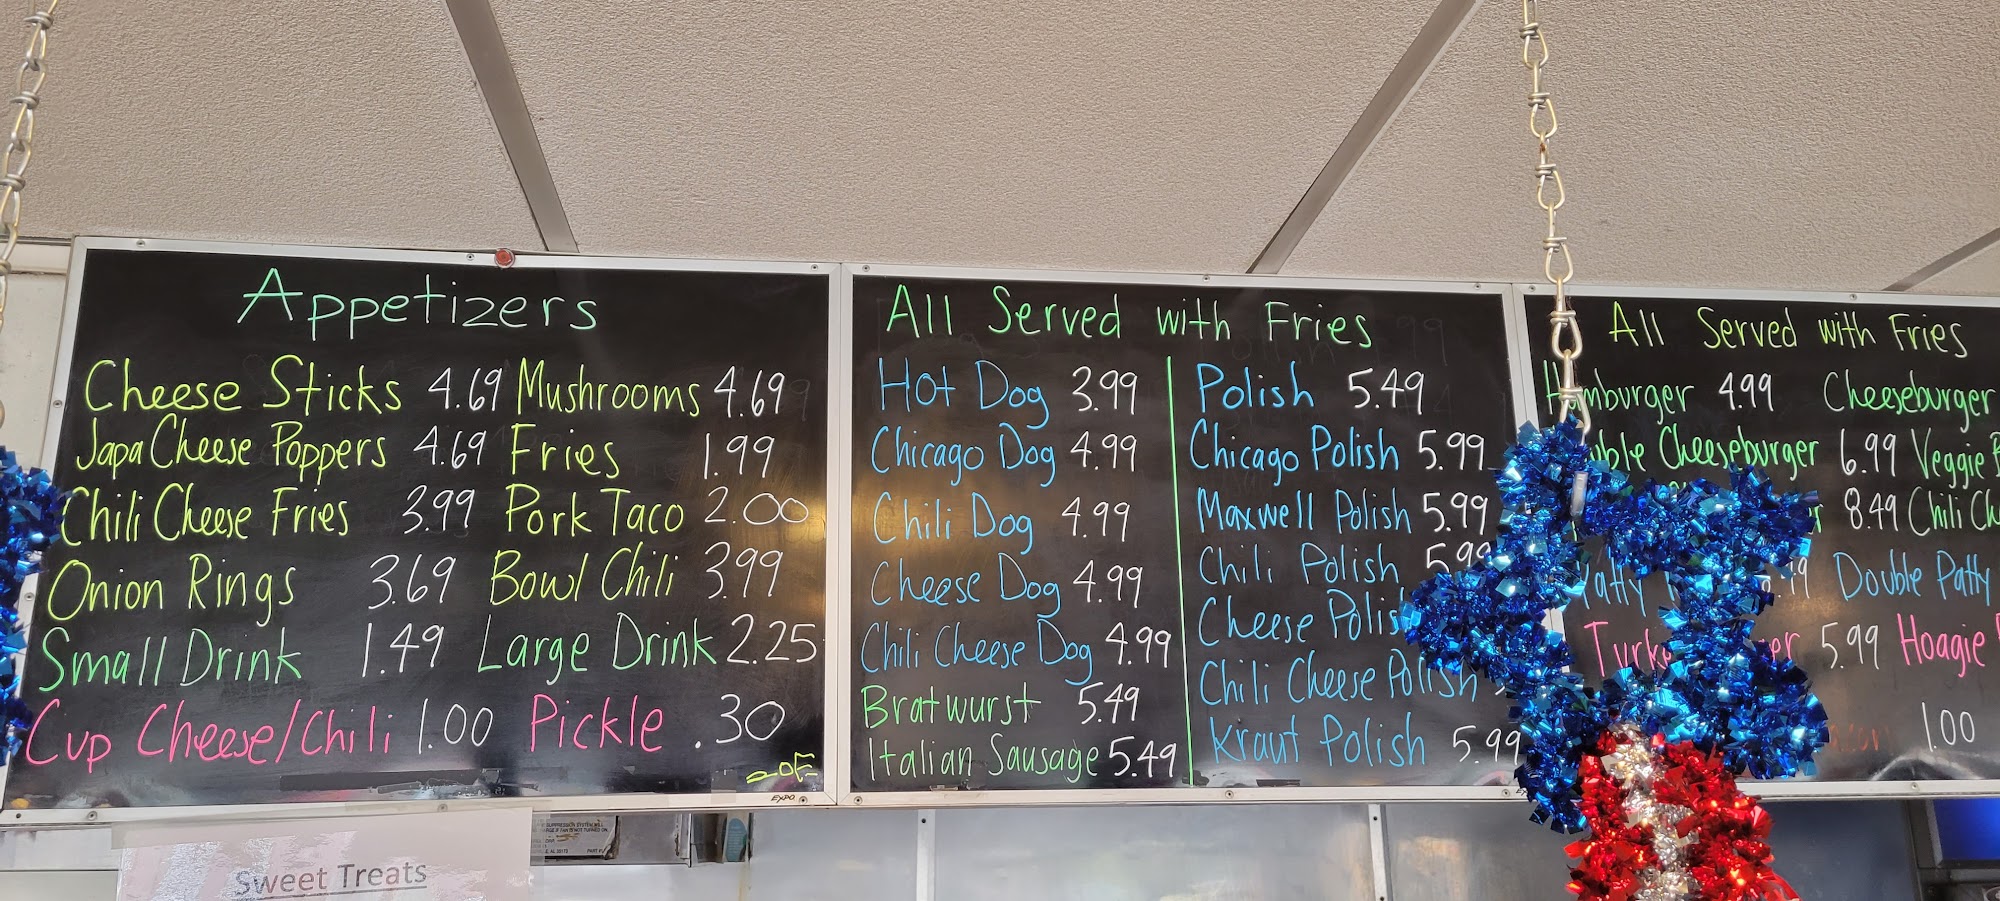 Appetizers
Cheese Sticks 4.69 Mushrooms 4.69
Japa Cheese Poppers 4.69 Fries 1.99
Chili Cheese Fries 3.99 Pork Taco 2.00
Onion Rings 3.69 Bowl Chili 3.99
Small Drink 1.49 Large Drink 2.25
Cup Cheese/Chili 1.00 Pickle .30
EXPO
All Served with Fries
Hot Dog 3.99
Chicago Dog 4.99
Chili Dog 4.99
Cheese Dog 4.99
Chili Cheese Dog 4.99
Bratwurst 5.49
Italian Sausage 5.49
Polish 5.49
Chicago Polish 5.99
Maxwell Polish 5.99
Chili Polish 5.99
Cheese Polish
Chili Cheese Polish
Kraut Polish 5.99
All Served with Fries
Hamburger 4.99 Cheeseburger
Cheeseburger 6.99 Veggie
8.49 Chili
Patty Double Patty
5.99 Hoagie
1.00
Sweet Treats